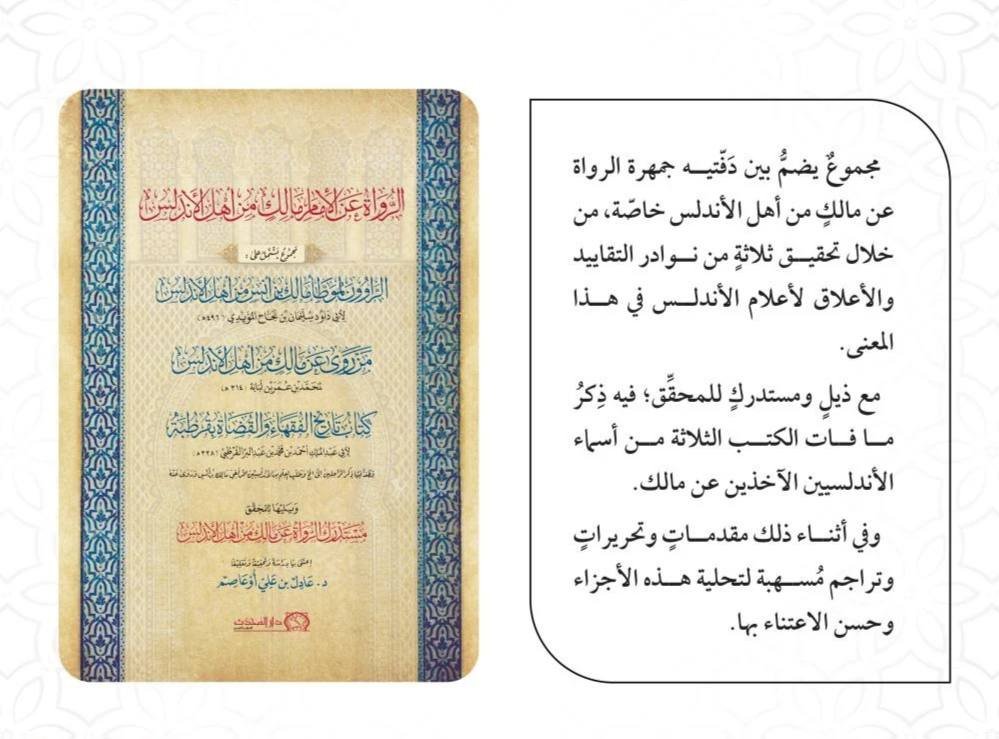 الرواة عن الإمام مالك من أهل الأندلس
مجموع يشتمل على :
الراوون لموطأ مالك بن أنس من أهل الأندلس
لأبي داود سليمان بن نجاح المؤيدي (٤٩٦هـ)
من روى عن مالك من أهل الأندلس
محمد بن عمر بن لبابة (٣١٤ هـ)
كتاب تاريخ الفقهاء والقضاة بقرطبة
لأبي عبد الملك أحمد بن محمد بن عبد البر القرطبي (٣٣٨هـ)
ويليها للمحقق
مستدرك الرواة عن مالك من أهل الأندلس
اعتنى بها دراسة وتحقيقا وتعليقا
د. عادل بن علي أوعاصم
دار الحديث
مجموعٌ يضمُّ بين دَفّتيـه جمهرة الرواة
عن مالكٍ من أهل الأندلس خاصّة، من
خلال تحقيـق ثلاثةٍ من نـوادر التقاييد
والأعلاق لأعلام الأندلـس في هـذا
المعنى.
مع ذيلٍ ومستدركٍ للمحقِّق؛ فيه ذِكرُ
مـا فـات الكتـب الثلاثة مـن أسماء
الأندلسيين الآخذين عن مالك.
وفي أثنـاء ذلك مقدمـاتٍ وتحريراتٍ
وتراجم مُسـهبة لتحلية هـذه الأجزاء
وحسن الاعتناء بها.